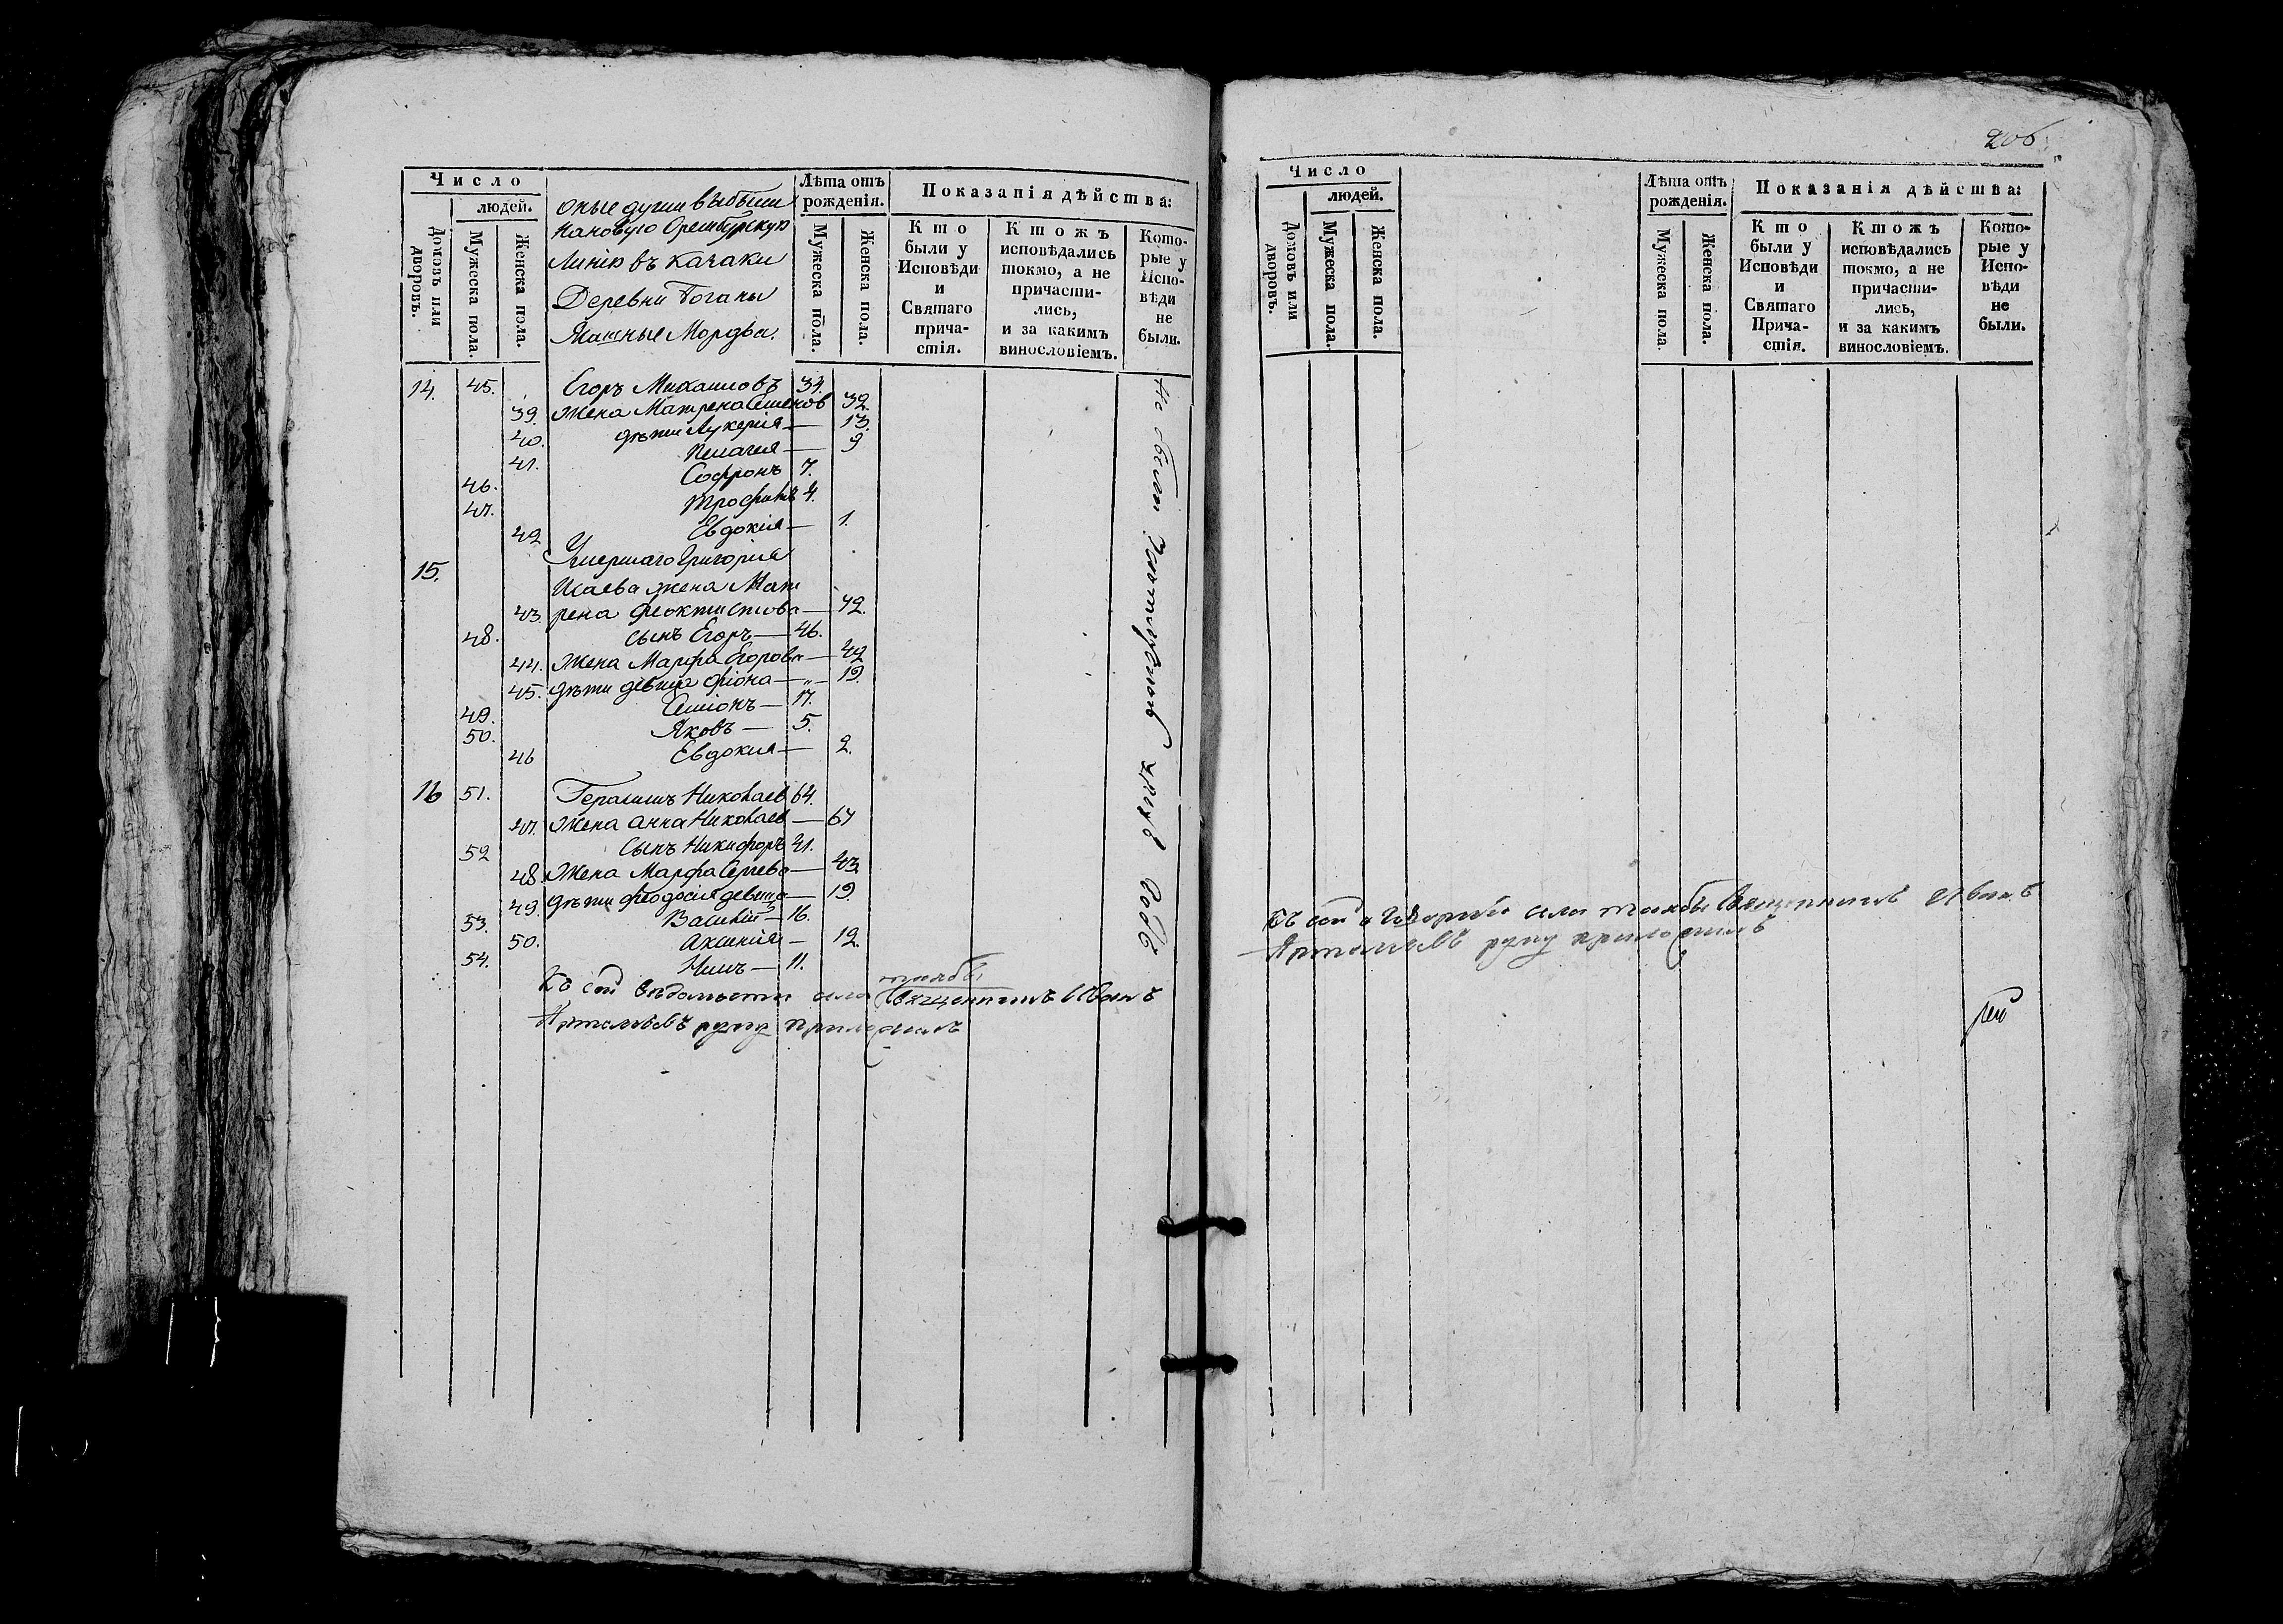 Число
людей.
Домовъ или дворовъ.
Мужеска пола.
Женска пола.
оные души выбыли
на новую Оренбурскую
Линію въ казаки
Деревни Поганы
Ясашные Мордва.
Лѣта отъ рожденія.
Мужеска пола.
Женска пола.
Показанія дѣйства:
Кто были у Исповѣди и Святаго причастія.
Ктожъ исповѣдались токмо, а не причастились, и за какимъ винословіемъ.
Которые у Исповѣди не были.
14. 45. Егоръ Михаиловъ 34.
39. Жена Матрена Семенов 32.
40. дѣти Лукерія — 13.
41. Пелагея — 9
46. Софронъ 7.
47. Трофимъ 4.
42 Евдокія — 1.
15. Умершаго Григорія
Исаева жена Мат
43. рена Феоктистова — 72.
48. сынъ Егоръ — 46.
44. Жена Марфа Егорова — 42
45. дѣти девица Фіона — 19.
49. Симіонъ — 17.
50. Яковъ — 5.
46 Евдокия — 2.
16 51. Герасимъ Николаев 64.
47. Жена Анна Николаев — 67
52 сынъ Никифоръ 41.
48 Жена Марфа Сергева — 43
49. дѣти Феодосія девица — 19
53. Василій — 16.
50. Аксинія — 12.
54. — 11.
Не были
Къ сей вѣдомости села
Священникъ Иванъ
Артемьевъ руку приложилъ
206
Число
людей.
Домовъ или дворовъ.
Мужеска пола.
Женска пола.
Лѣта отъ рожденія.
Мужеска пола.
Женска пола.
Показанія дѣйства:
Кто были у Исповѣди и Святаго Причастія.
Ктожъ исповѣдались токмо, а не причастились, и за какимъ винословіемъ.
Которые у Исповѣди не были.
Къ сей села Священникъ Иванъ
Артемьевъ руку приложилъ